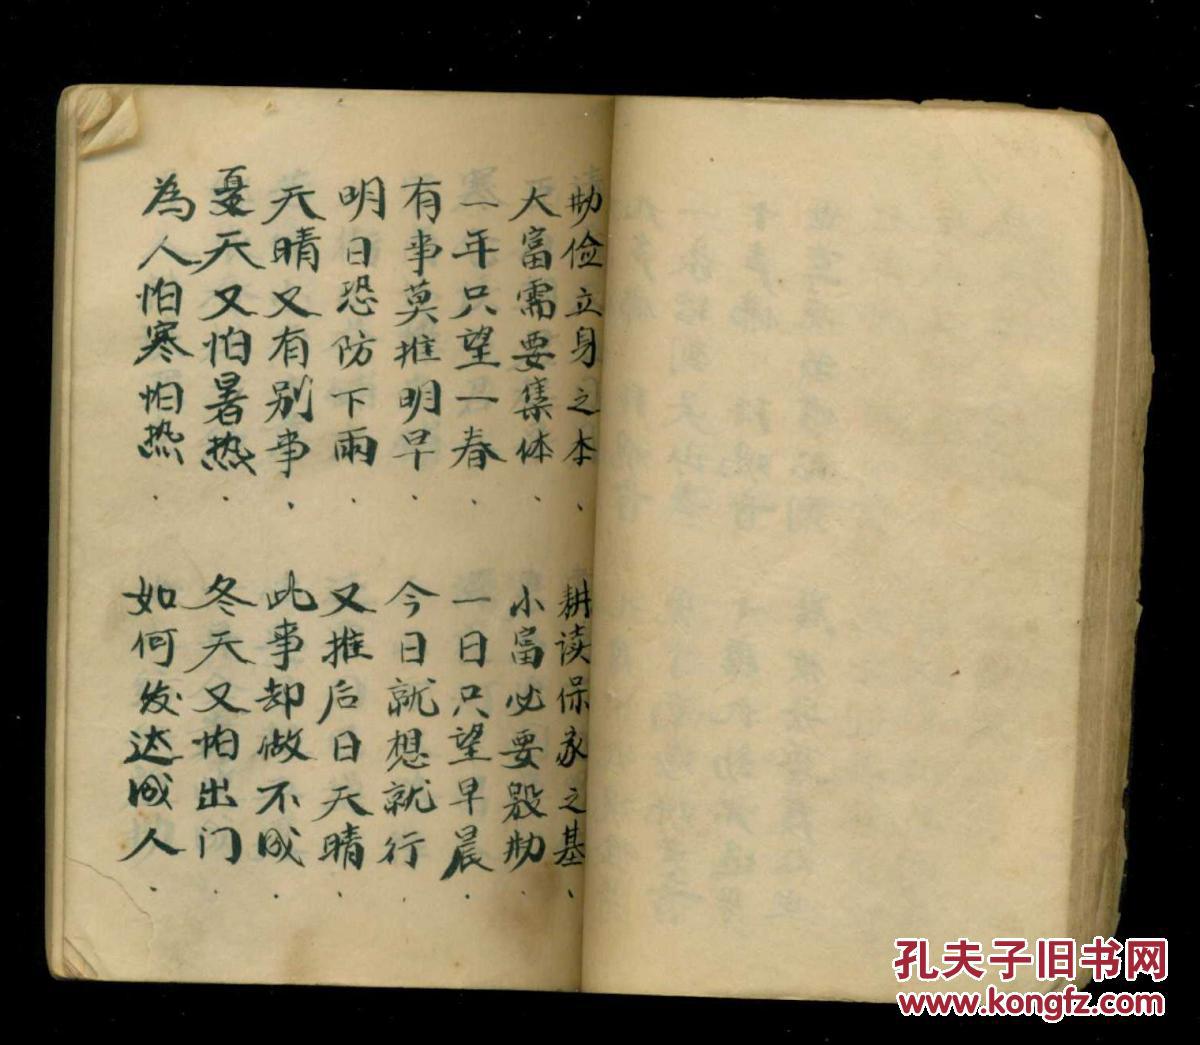 勤俭立身之本、耕读保家之基、
大富需要集体.小富必要殷勤.
一年只望一春.一日只望早晨.
有事莫推明早.今日就想就行.
明日恐防下雨.又推后日天晴.
天晴又有别事、此事却做不成.
夏天又怕暑热.冬天又怕出门.
為人怕寒怕热.如何发达成人.
孔夫子旧书网
www.kongfz.com